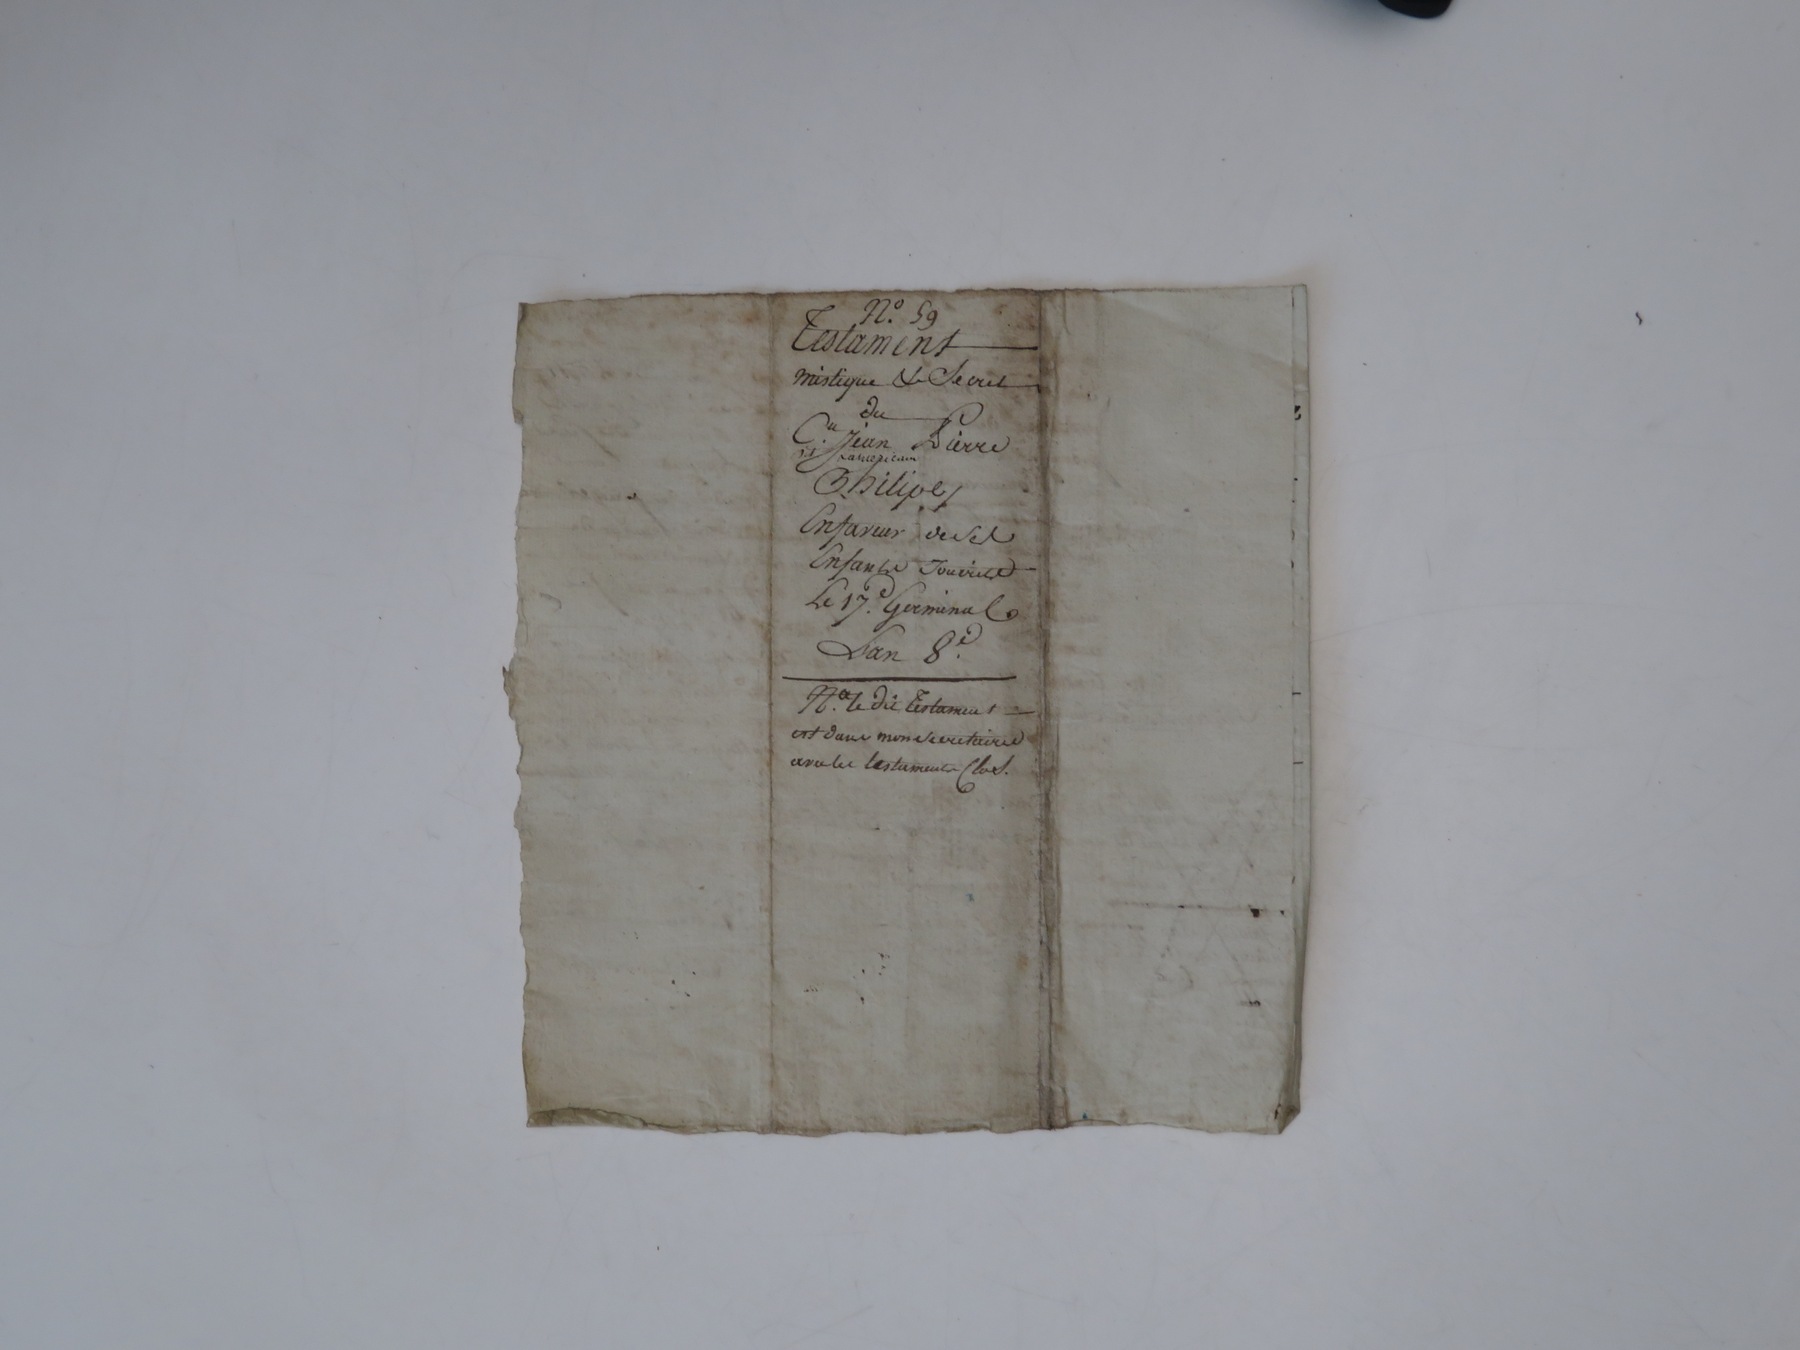 N.º 59
Testament
mistique & Secret
du
C.en Jean Pierre
dit Lamericain
Philipe
Enfaveur de Ses
Enfants Souscrit
Le 17.e Germinal
Lan 8.e
N.a le dit testament
est dans mon Secretaire
avec les testaments Clos.